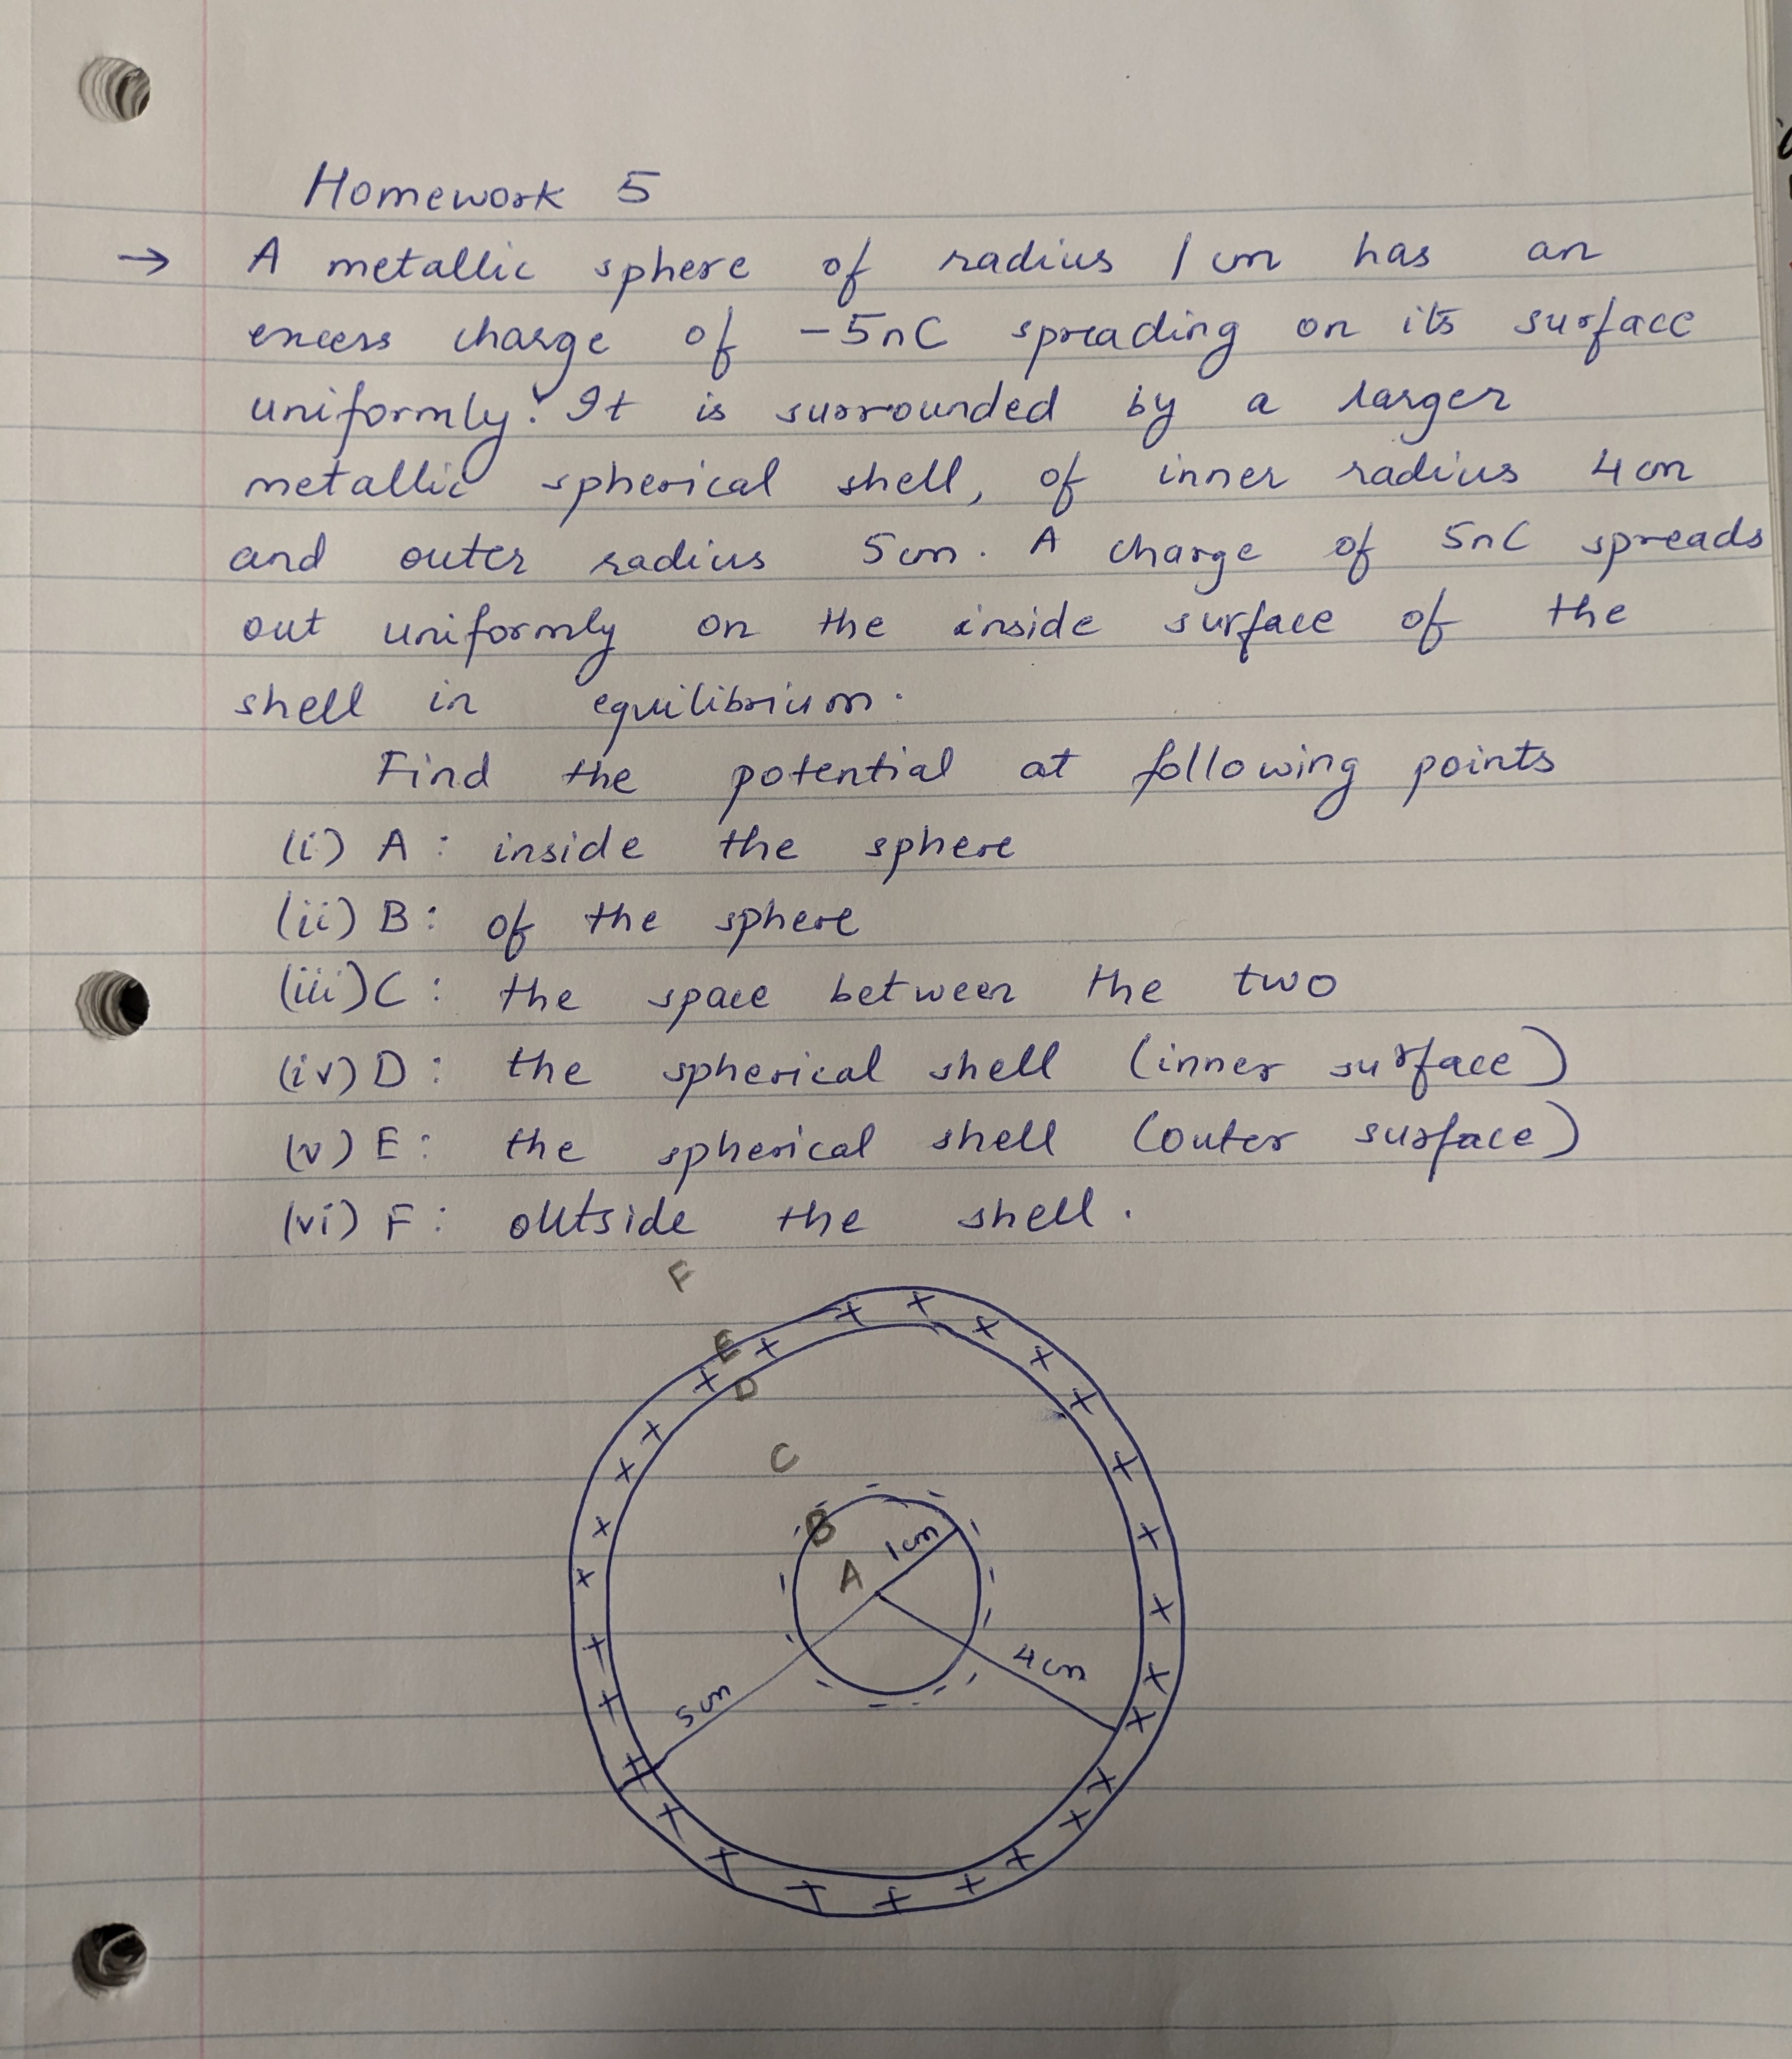 Homework 5
→ A metallic sphere of radius 1 cm has an
excess charge of -5nC spreading on its surface
uniformly. It is surrounded by a larger
metallic spherical shell, of inner radius 4 cm
and outer radius 5cm. A charge of 5nC spreads
out uniformly on the inside surface of the
shell in equilibrium.
Find the potential at following points
(i) A: inside the sphere
(ii) B: of the sphere
(iii) C: the space between the two
(iv) D: the spherical shell (inner surface)
(v) E: the spherical shell (outer surface)
(vi) F: outside the shell.
F
+ + + + + + + + + + + + + + + + + + + + + + + + + + + + + + + +
E
D
C
B
A
1cm
4cm
5cm